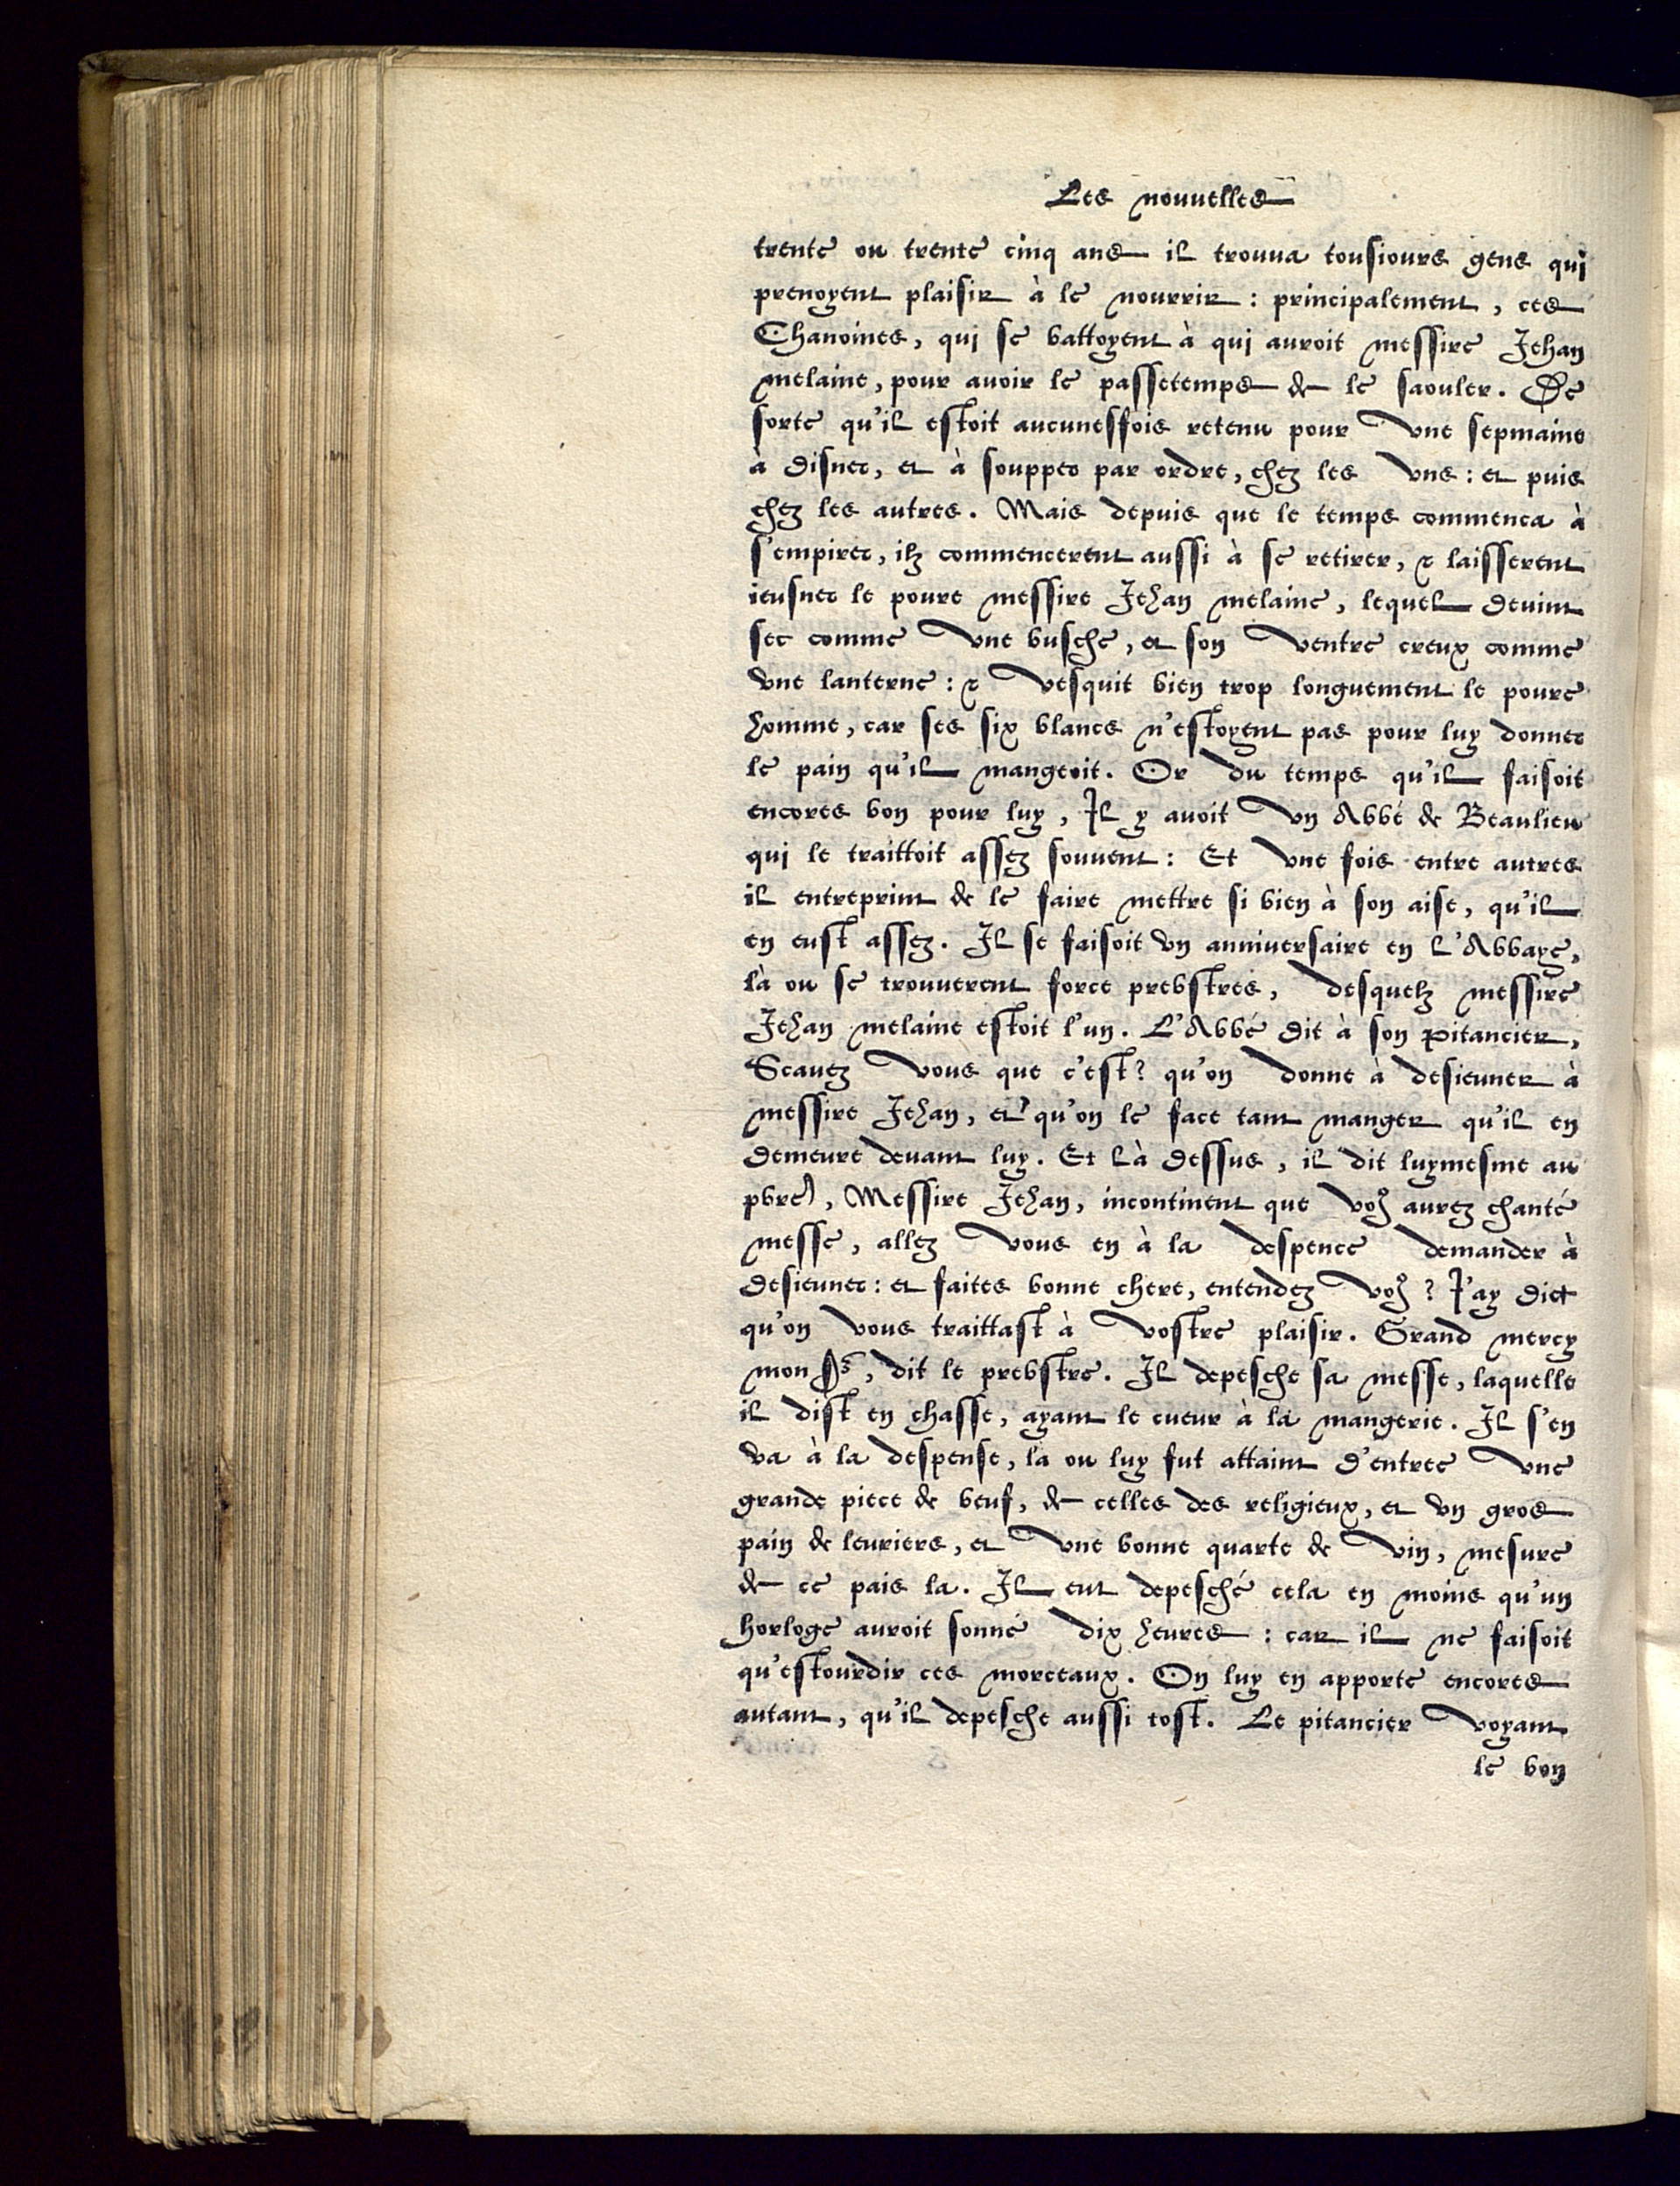 Les nouuelles
trente ou trente cinq ans il trouua tousiours gens qui
prenoyent plaisir à le nourrir : principalement, ces
Chanoines, qui se battoyent à qui auroit messire Jehan
melaine, pour auoir le passetemps de le saouler. De
sorte qu'il estoit aucunesfois retenu pour vne sepmaine
à disner, et à soupper par ordre, chez les vns : et puis
chez les autres. Mais depuis que le temps commenca à
s'empirer, ilz commencerent aussi à se retirer, & laisserent
ieusner le poure messire Jehan melaine, lequel deuint
sec comme vne busche, et son ventre creux comme
vne lanterne : & vesquit bien trop longuement le poure
homme, car ses six blancs n'estoyent pas pour luy donner
le pain qu'il mangeoit. Or du temps qu'il faisoit
encores bon pour luy, Il y auoit vn Abbé de Beaulieu
qui le traittoit assez souuent : Et vne fois entre autres
il entreprint de le faire mettre si bien à son aise, qu'il
en eust assez. Il se faisoit vn anniuersaire en l'Abbaye,
là ou se trouuerent force prebstres, desquelz messire
Jehan melaine estoit l'un. L'Abbé dit à son pitancier,
Scauez vous que c'est? qu'on donne à desieuner à
messire Jehan, et qu'on le face tant manger qu'il en
demeure deuant luy. Et là dessus, il dit luymesme au
pbre, Messire Jehan, incontinent que vo9 aurez chanté
messe, allez vous en à la despence demander à
desieuner : et faites bonne chere, entendez vo9 ? J'ay dict
qu'on vous traittast à vostre plaisir. Grand mercy
mon Sr, dit le prebstre. Il depesche sa messe, laquelle
il dist en chasse, ayant le cueur à la mangerie. Il s'en
va à la despense, la ou luy fut attaint d'entree vne
grande piece de beuf, de celles des religieux, et vn gros
pain de leuriers, et vne bonne quarte de vin, mesure
de ce pais la. Il eut depesché cela en moins qu'un
horloge auroit sonné dix heures : car il ne faisoit
qu'estourdir ces morceaux. On luy en apporte encores
autant, qu'il depesche aussi tost. Le pitancier voyant
le bon